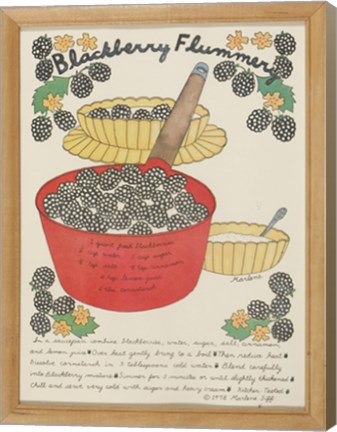 Blackberry Flummery
1 quart fresh blackberries
water 2 cup sugar
salt cinnamon
lemon juice
cornstarch
Marlene
In a saucepan combine blackberries, water, sugar, salt, cinnamon,
and lemon juice Over heat gently bring to a boil Then reduce heat
Dissolve cornstarch in 3 tablespoons cold water Blend carefully
into blackberry mixture Simmer for 5 minutes or until slightly thickened
Chill and serve very cold with sugar and heavy cream Kitchen Tested
© 1978 Marlene Siff